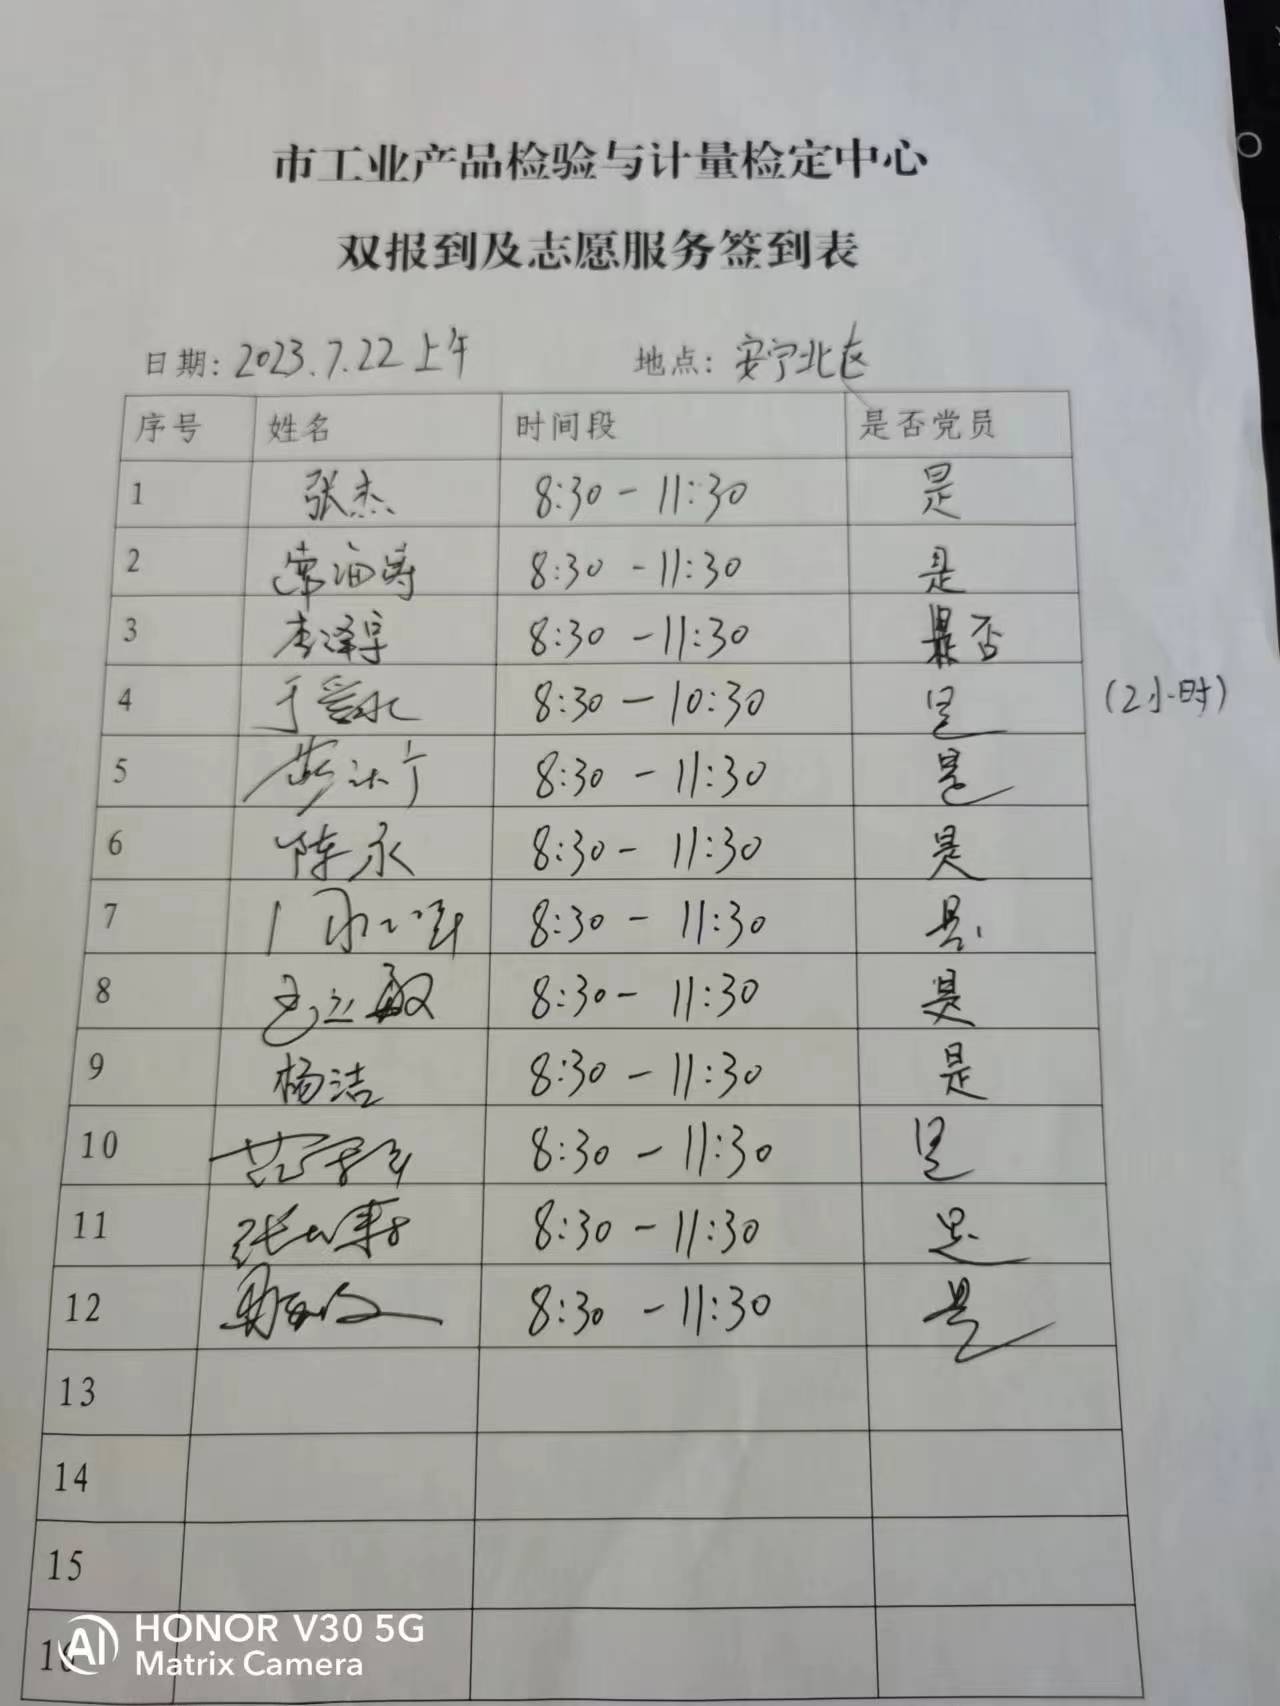 市工业产品检验与计量检定中心
双报到及志愿服务签到表
日期: 2023.7.22 上午 地点: 安宁北区
序号 姓名 时间段 是否党员
1 张杰 8:30 - 11:30 是
2 常海涛 8:30 - 11:30 是
3 李泽淳 8:30 - 11:30 否
4 8:30 - 10:30 是 (2小时)
5 8:30 - 11:30 是
6 陈永 8:30 - 11:30 是
7 8:30 - 11:30 是
8 8:30 - 11:30 是
9 杨洁 8:30 - 11:30 是
10 8:30 - 11:30 是
11 8:30 - 11:30 是
12 8:30 - 11:30 是
13
14
15
16
AI HONOR V30 5G
Matrix Camera